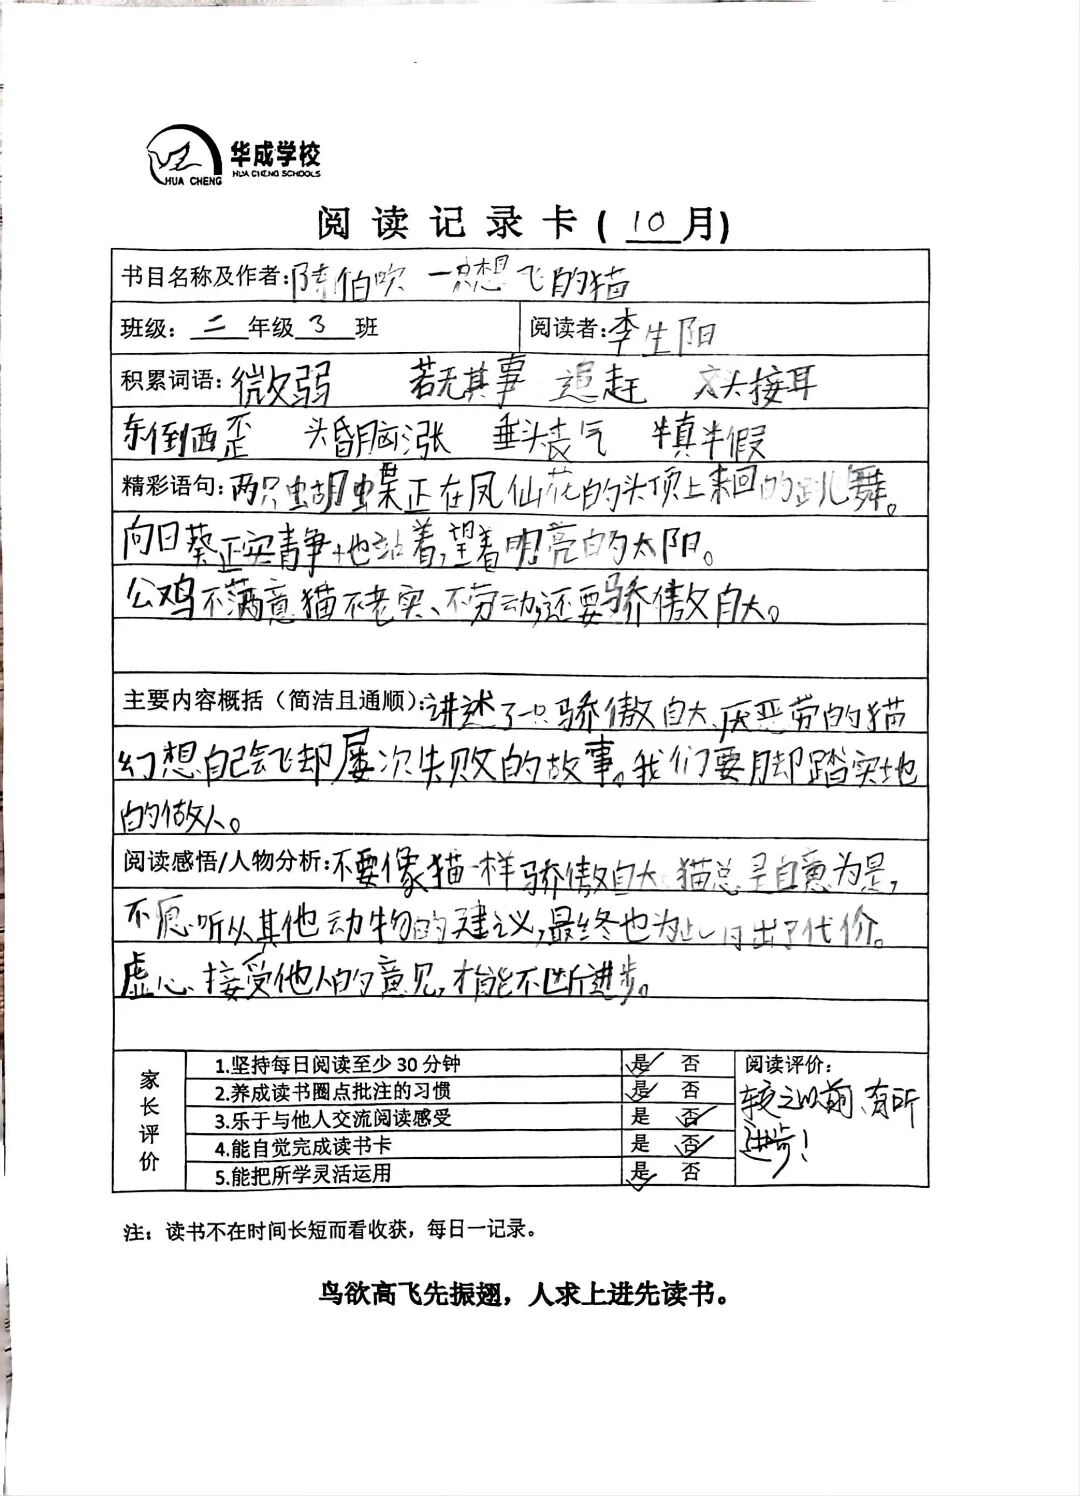 华成学校
HUA CHENG SCHOOLS
HUA CHENG
阅读记录卡(10月)
书目名称及作者:陈伯吹 一只想飞的猫
班级:二年级3班 阅读者:李生阳
积累词语:微弱 若无其事 追赶 交头接耳
东倒西歪 头昏脑涨 垂头丧气 半真半假
精彩语句:两只蝴蝶正在凤仙花的头顶上来回的跳舞。
向日葵正安静地站着,望着明亮的太阳。
公鸡不满意猫不老实、不劳动,还要骄傲自大。
主要内容概括(简洁且通顺):讲述了一只骄傲自大、厌恶劳的猫
幻想自己会飞却屡次失败的故事。我们要脚踏实地
的做人。
阅读感悟/人物分析:不要像猫一样骄傲自大,猫总是自意为是,
不愿听从其他动物的建议,最终也为此付出了代价。
虚心接受他人的意见,才能不断进步。
家长评价
1.坚持每日阅读至少30分钟 是✓ 否
2.养成读书圈点批注的习惯 是✓ 否
3.乐于与他人交流阅读感受 是 否✓
4.能自觉完成读书卡 是 否✓
5.能把所学灵活运用 是✓ 否
阅读评价:
较之以前、有所
进步!
注:读书不在时间长短而看收获,每日一记录。
鸟欲高飞先振翅,人求上进先读书。